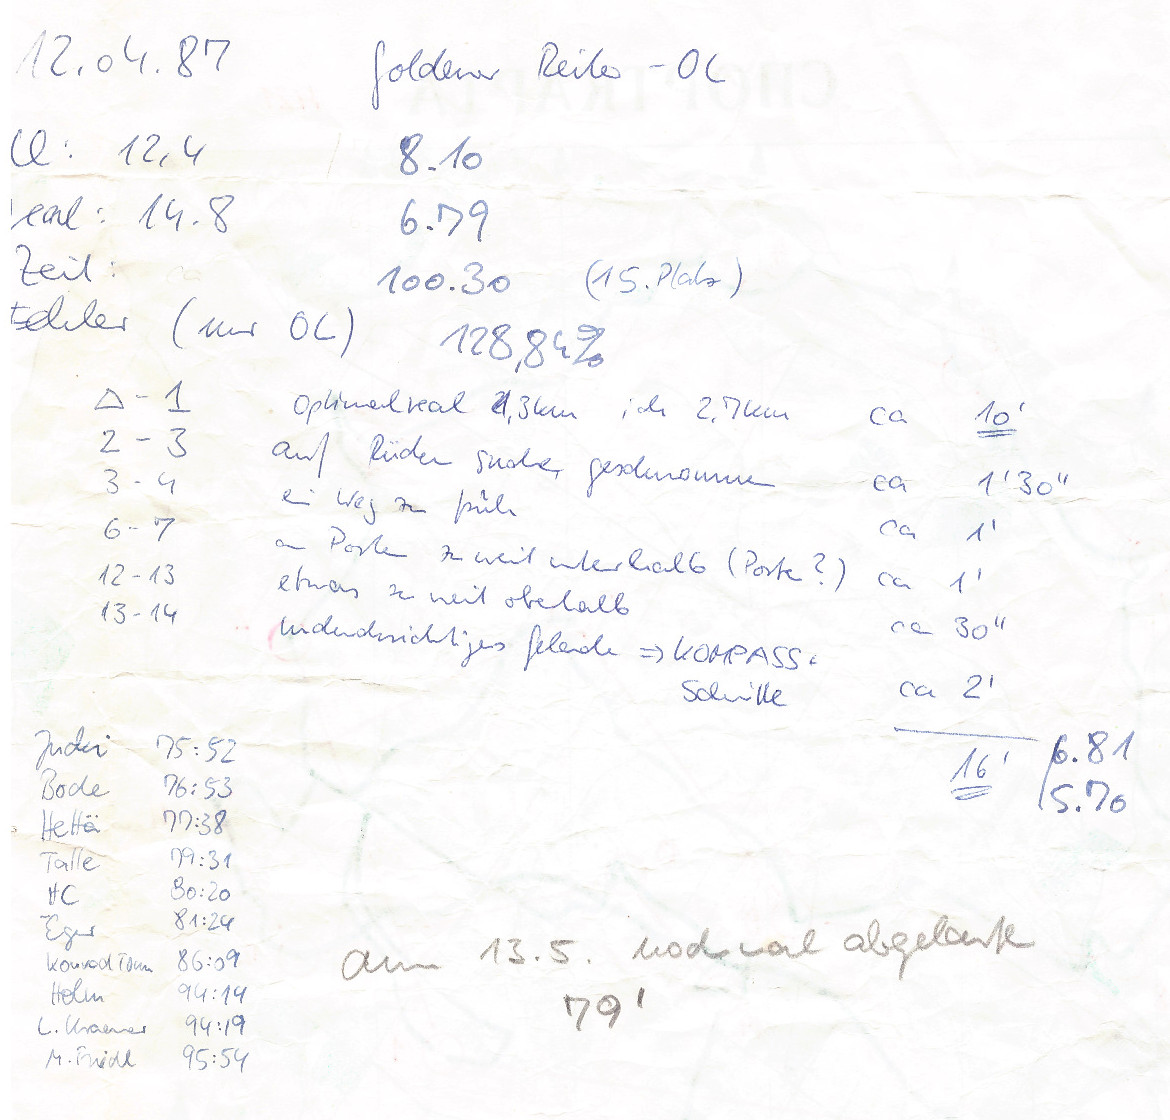 12.04.87 Goldener Reiter - OL
Ül: 12,4 8.10
real: 14.8 6.79
Zeit: 100.30 (15. Platz)
Fehler (nur OL) 128,84%
△ - 1 optimal real 2,3km ich 2,7km ca 10'
2 - 3 auf geschwommen ca 1'30"
3 - 4 ein Weg zu früh ca 1'
6 - 7 am Posten zu weit unterhalb (Posten?) ca 1'
12-13 etwas zu weit oberhalb ca 30"
13-14 undurchsichtiges Gelände => KOMPASS +
Schritte ca 2'
16' 6.81
5.70
Juckei 75:52
Bode 76:53
Hettä 77:38
Talle 79:31
HC 80:20
Eger 81:24
Konrad Tom 86:09
Holm 94:14
L. Kraemer 94:19
M. Friedl 95:54
am 13.5. nochmal abgelaufen
79'